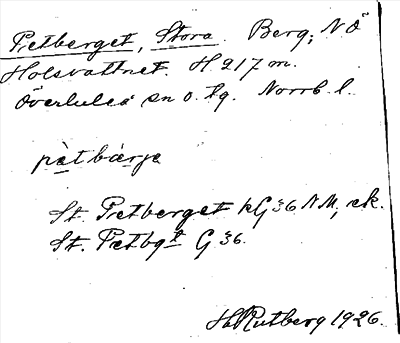 Pietberget, Stora. Berg; NÖ
Holsvattnet. H 217 m.
Överluleå sn o. tg. Norrb. l.
pät bärje
St. Pietberget kG 36 NM, ek.
St. Pietbgt G 36.
H. Rutberg 1926.